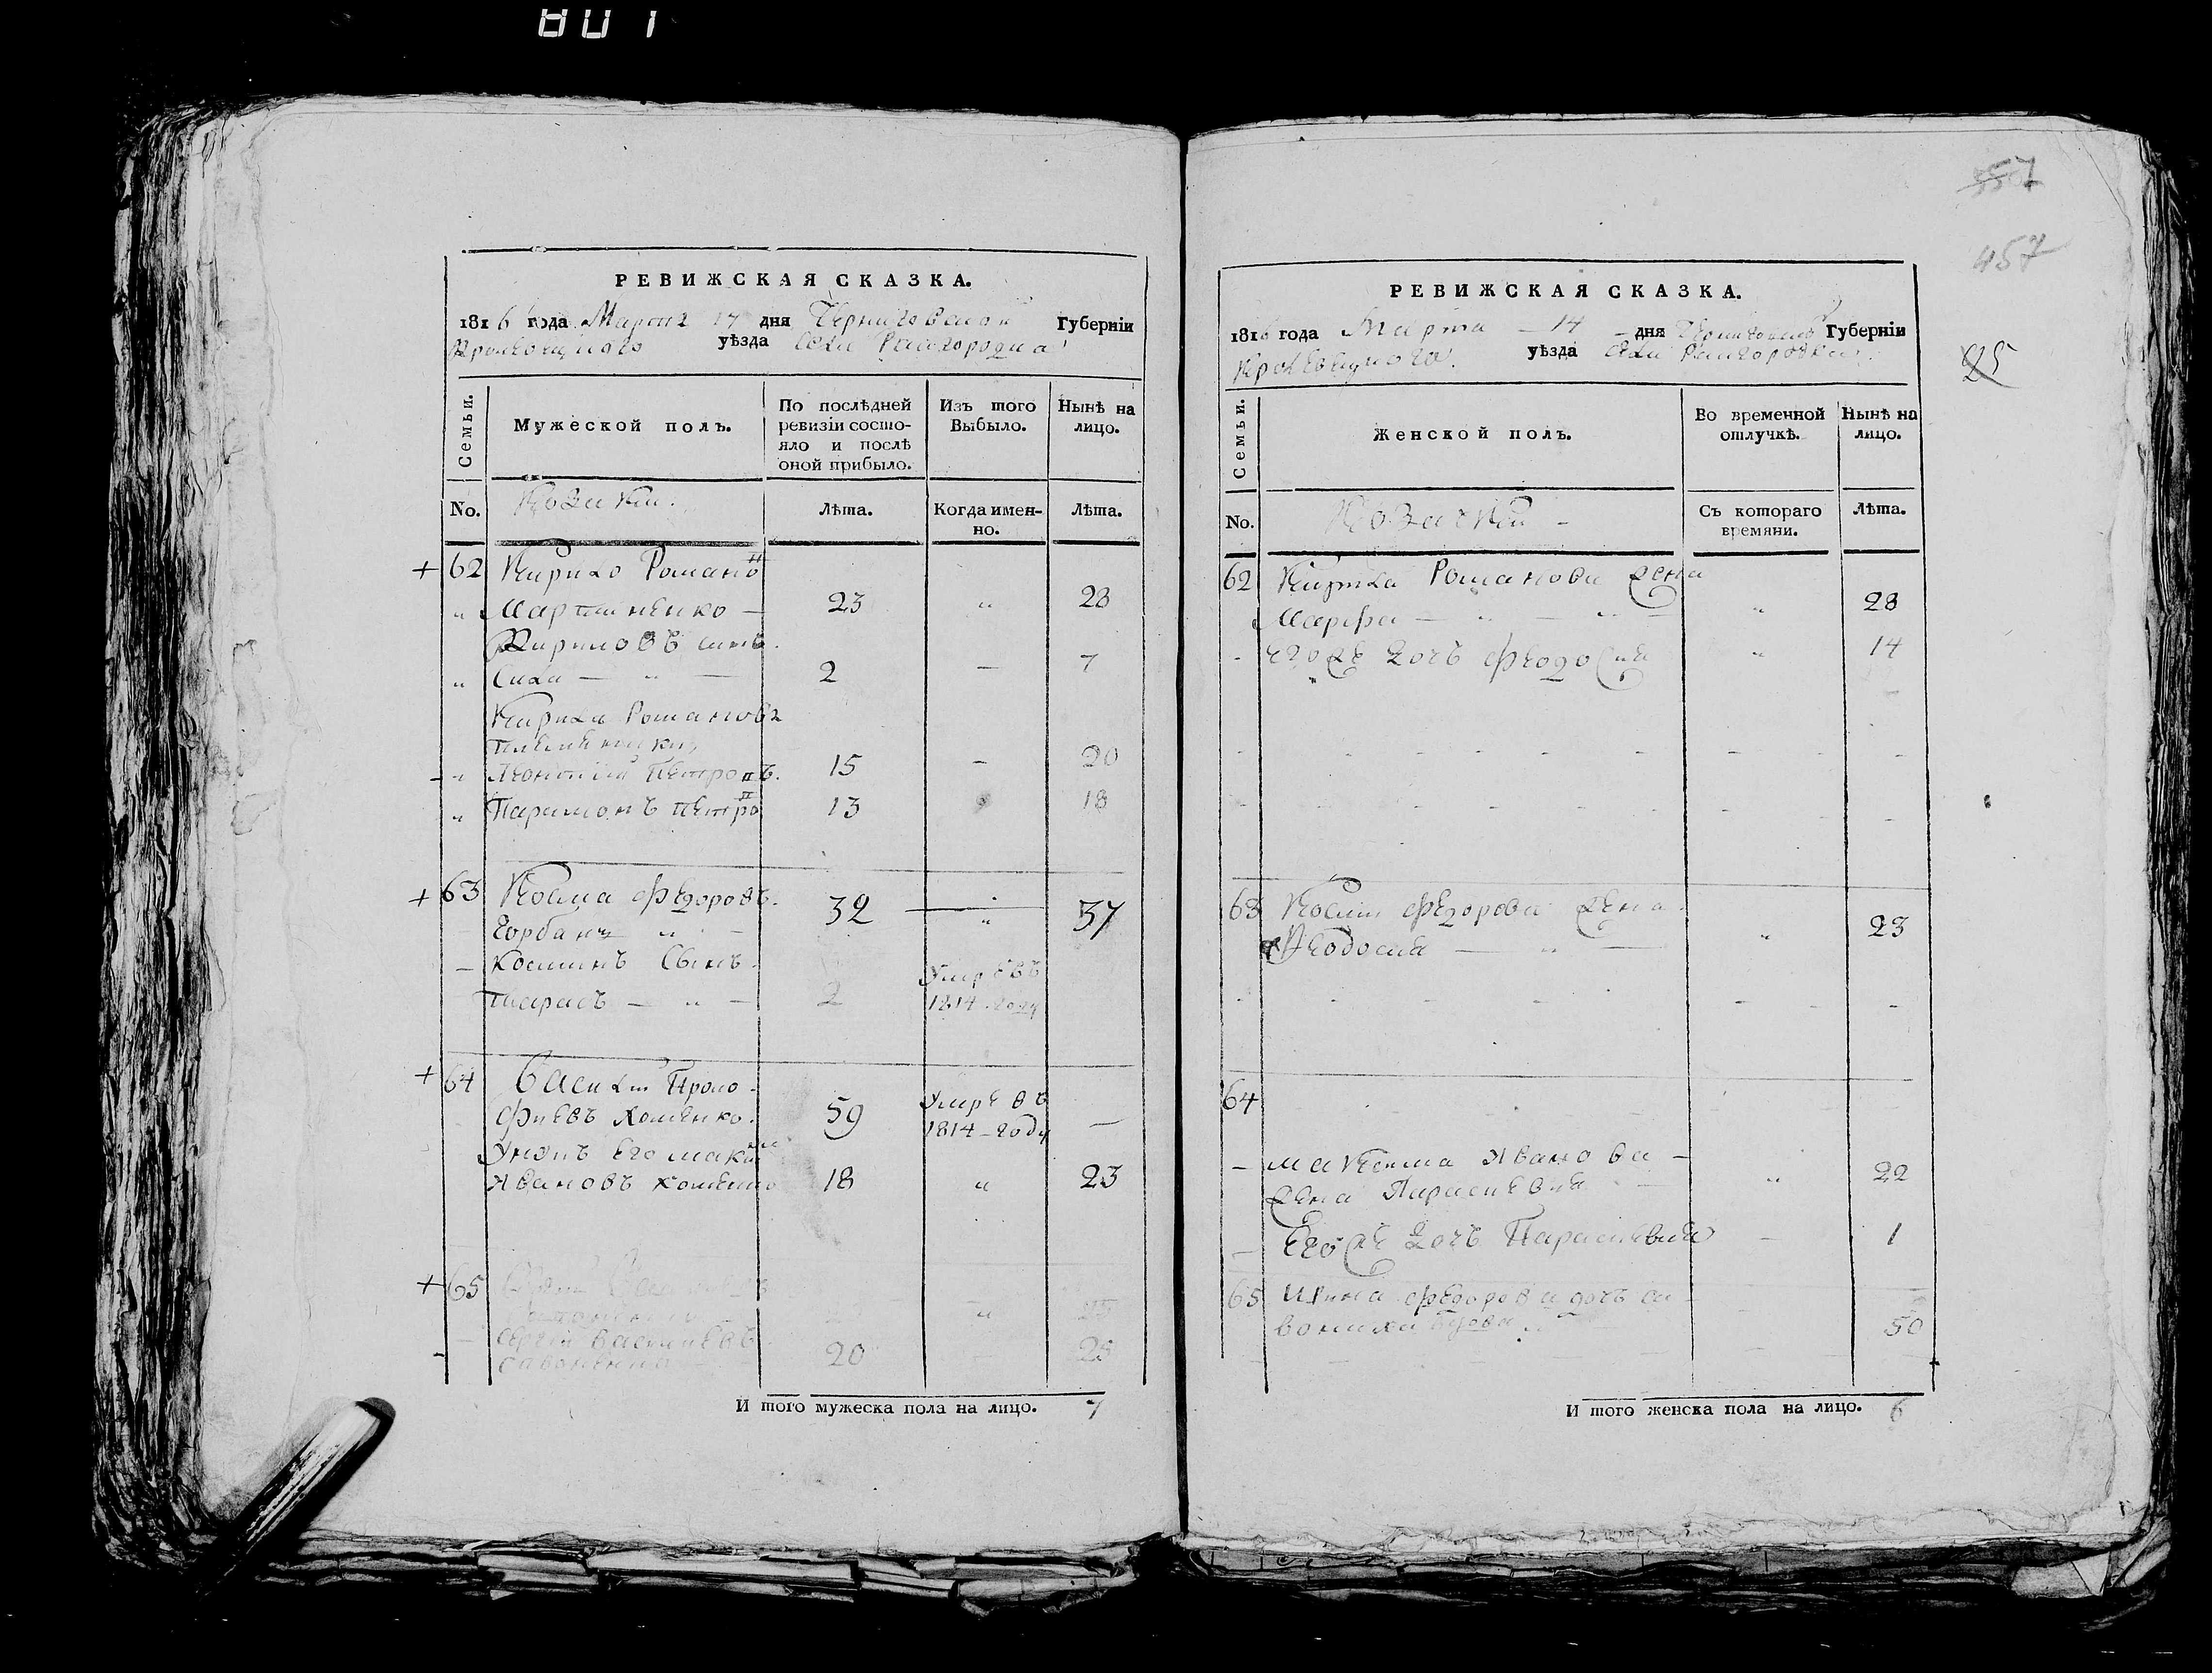 801
РЕВИЖСКАЯ СКАЗКА.
1816 года Марта 14 дня Черниговской Губерніи
Кролевецкаго уѣзда Села Райгородка
Семьи.
Мужеской полъ.
По послѣдней ревизіи состояло и послѣ оной прибыло.
Изъ того Выбыло.
Нынѣ на лицо.
No.
Козаки.
Лѣта.
Когда именно.
Лѣта.
+ 62 Кирило Романовъ
" Мартиненко — 23 " 28
Кириловъ синъ.
" Сила — " — 2 — 7
Кирила Романова
племенники
" Леонтий Петровъ. 15 — 20
" Парамонъ Петро 13 18
+ 63 Козма Федоровъ.
Горбань " — 32 " 37
— Козминъ Сынъ.
Тарасъ — " — 2 Умре въ 1814 году
+ 64 Василий Проко-
фиевъ Хоменко. 59 Умре въ 1814 году —
Унукъ Его Максим
Ивановъ Хоменко 18 " 23
+ 65
" 25
Сергій Василиевъ 20 25
И того мужеска пола на лицо. 7
557
457
25
РЕВИЖСКАЯ СКАЗКА.
1816 года Марта 14 дня Черниговской Губерніи
Кролевецкого уѣзда Села Райгородка
Семьи.
Женской полъ.
Во временной отлучкѣ.
Нынѣ на лицо.
No.
Козачки —
Съ котораго времяни.
Лѣта.
62 Кирила Романова жена
Марфа — " — " 28
- егоже дочь Феодосия " 14
63 Козми Федорова жена
Феодосия — " — " 23
64
— Максима Иванова —
жена Параскевия " 22
— Его же дочь Параскевия — 1
65 Ирина Федорова дочь
вдова 50
И того женска пола на лицо. 6